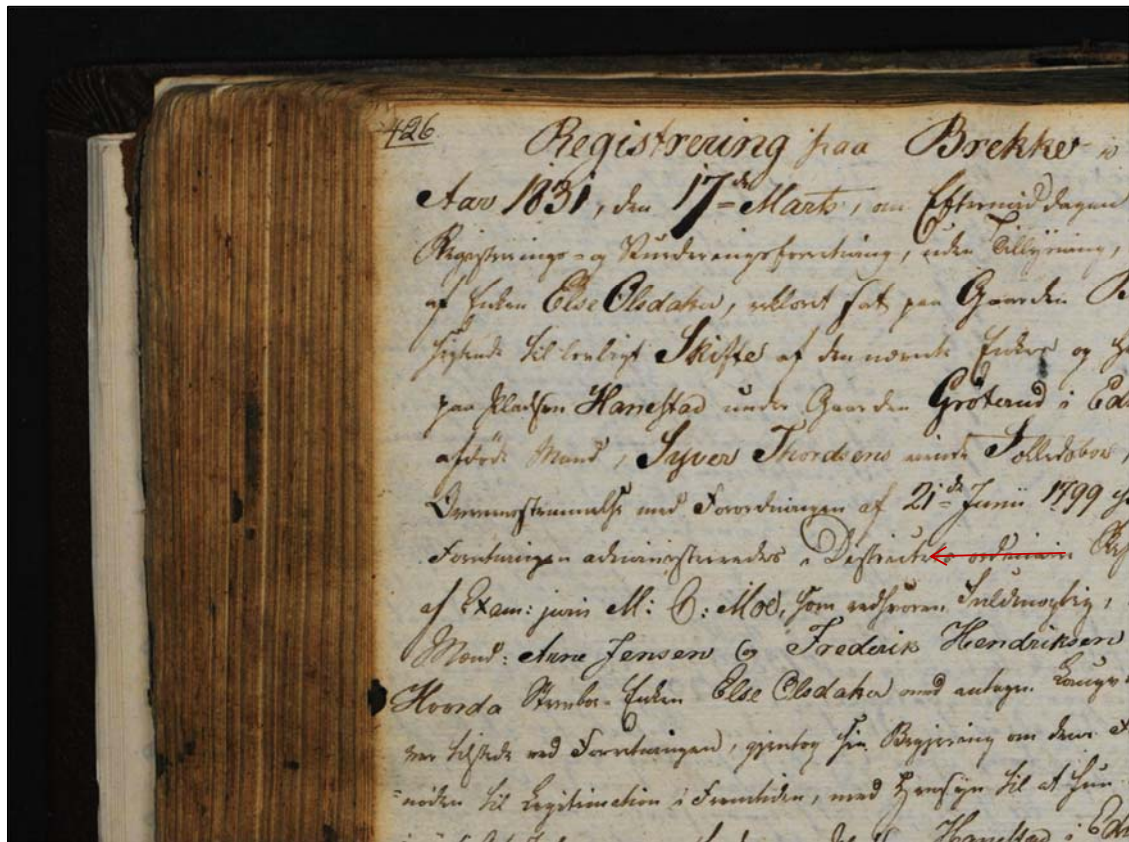 426
Registrering paa Brekke i
Aar 1831, den 17de Marts, om Eftermiddagen
Registrerings- og Vurderingsforretning, uden Tillysning,
af Enken Else Olsdatter, sat paa Gaarden B
sigtende til lovligt Skifte af den nævnte Enkes og
paa Pladsen Hanestad under Gaarden Gröterud i Ed
afdöde Mand, Syver Thordsens
Overensstemmelse med Forordningen af 21de Junii 1799
Forretningen administreredes i Districtets ordinaire
af Exam: juris M: C: Moe, som edsvoren Fuldmægtig,
Mænd: Arne Jensen og Frederik Hendriksen
Hvorda Stervbo-Enken Else Olsdatter med antagen Laugv
var tilstede ved Forretningen, gjentog sin Begjering om dens F
nöden til Legitimation i Fremtiden, med Hensyn til at hun
Hanestad i Ed